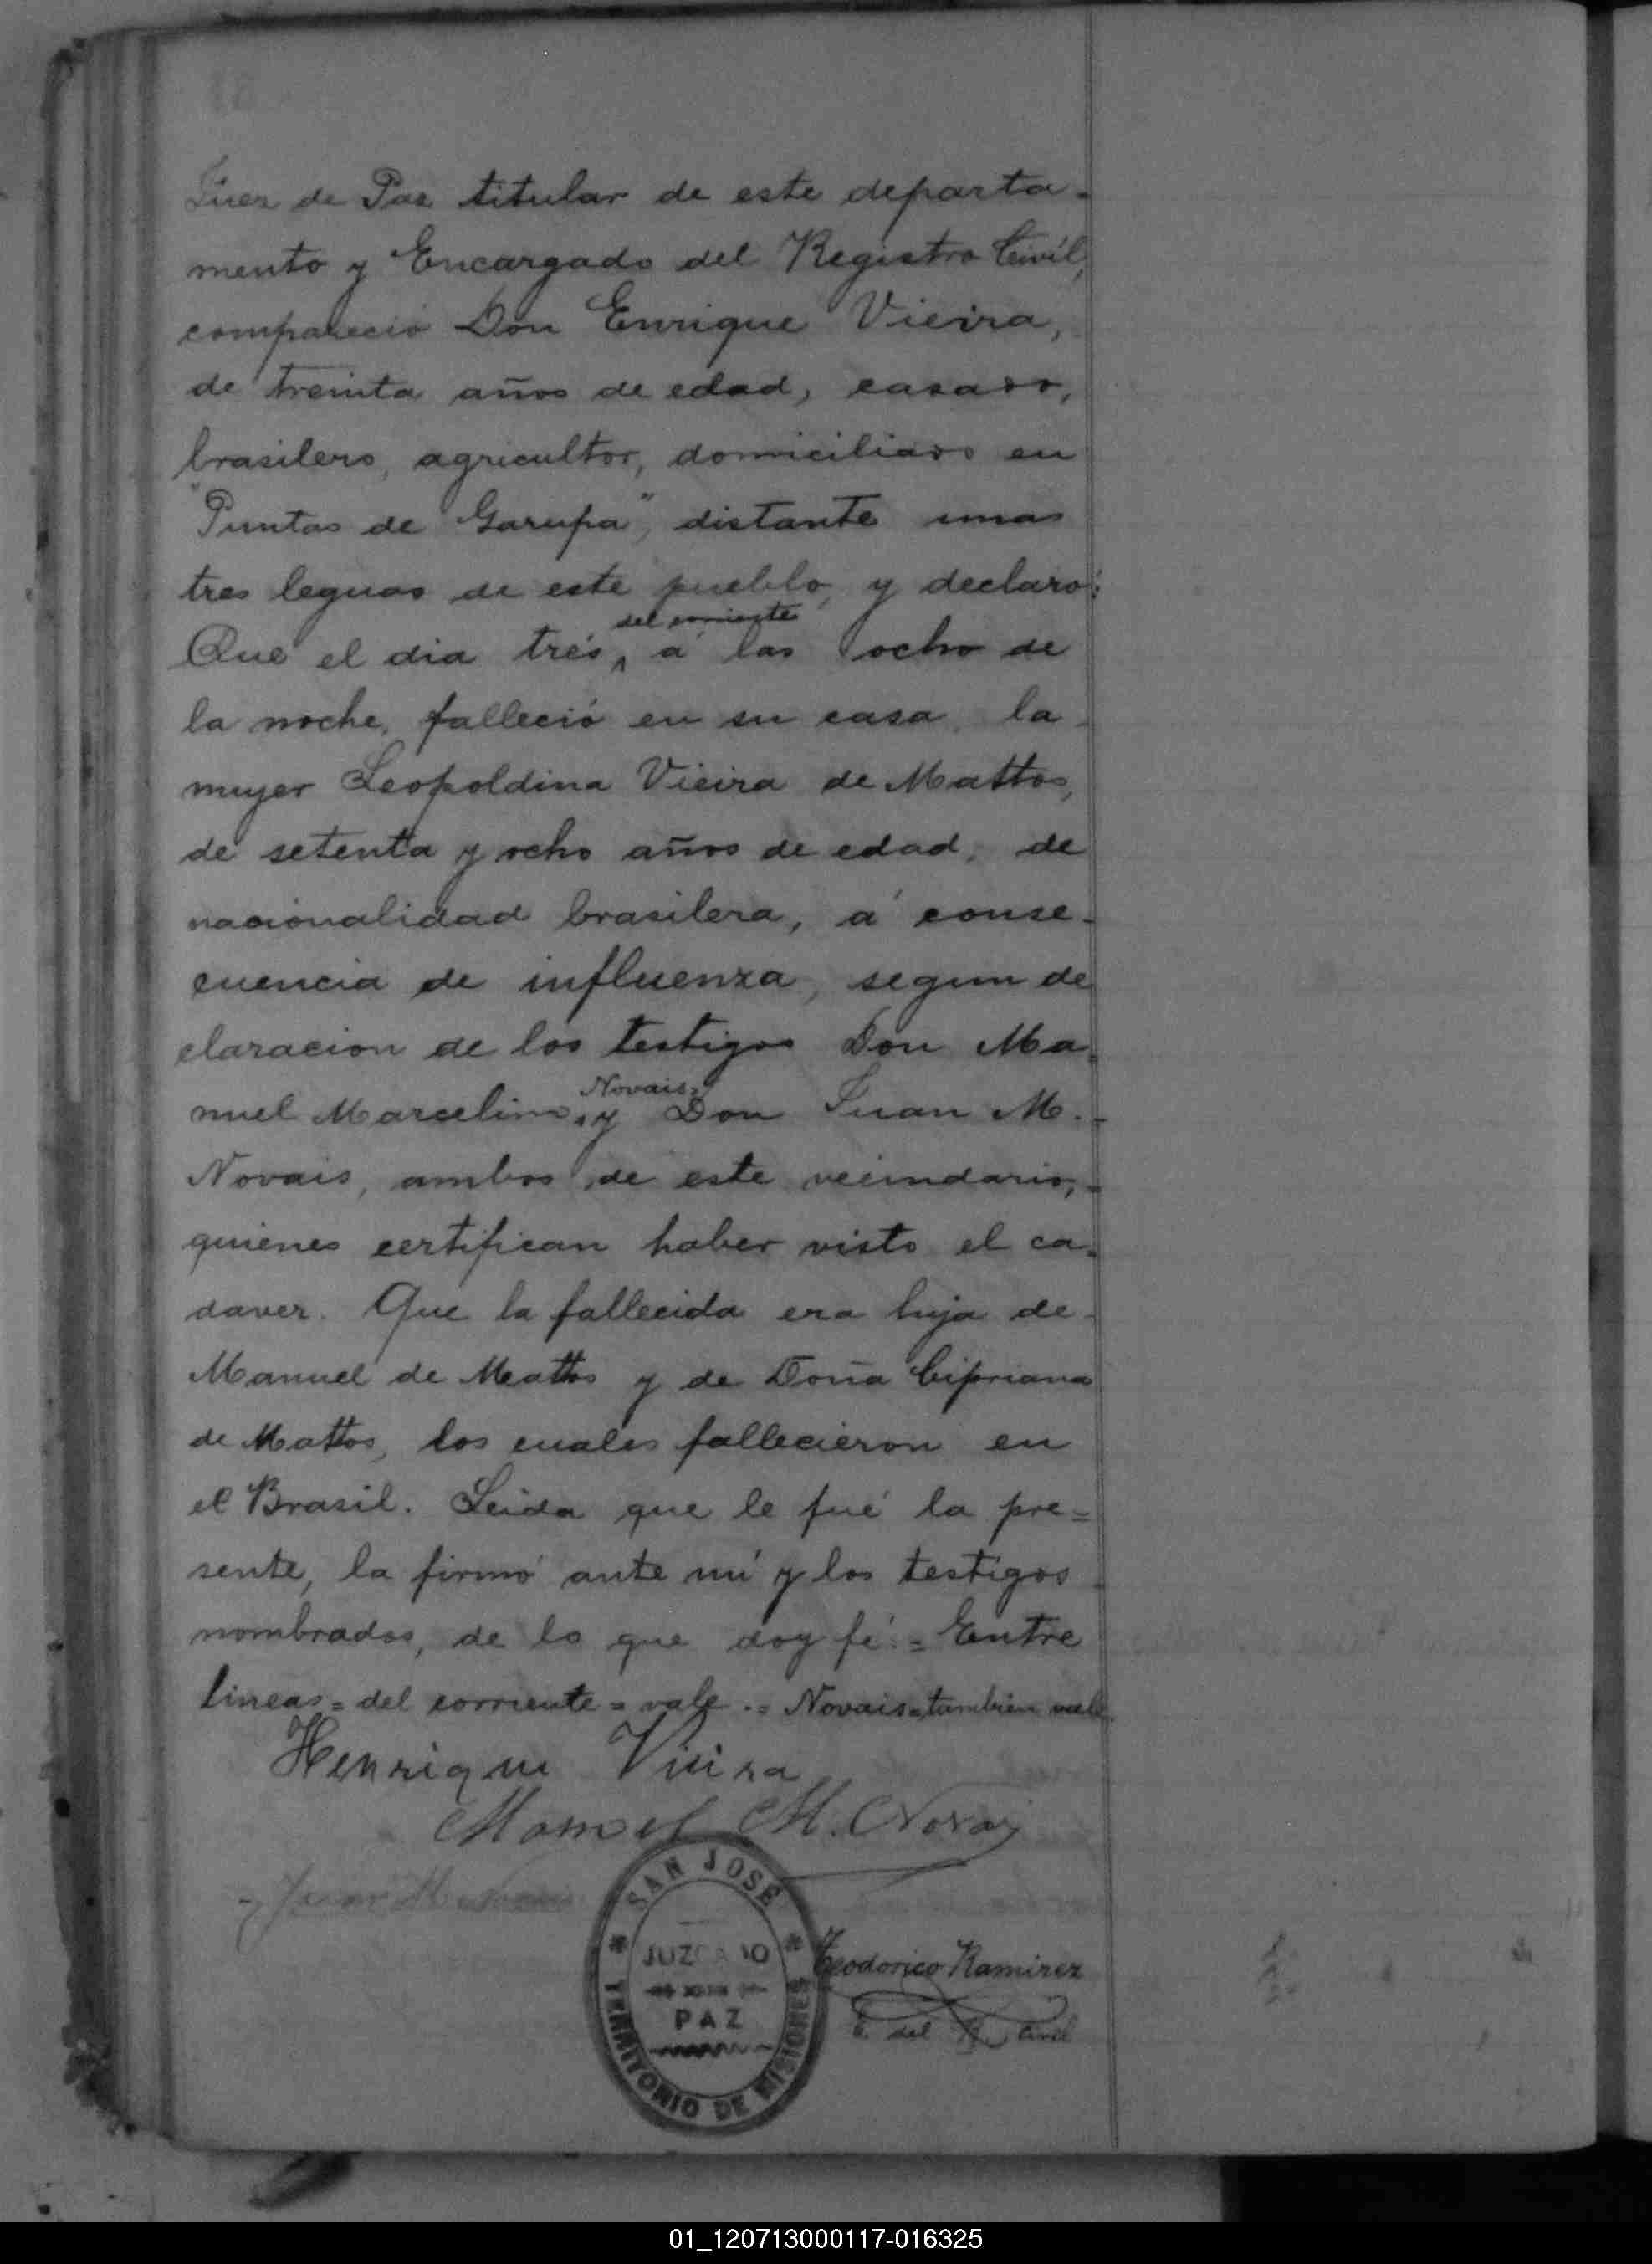 Juez de Paz titular de este departa-
mento y Encargado del Registro Civil,
compareció Don Enrique Vieira,
de treinta años de edad, casado,
brasilero, agricultor, domiciliado en
"Puntas de Garupa", distante unas
tres leguas de este pueblo, y declaró:
del corriente
Que el dia trés, á las ocho de
la noche, falleció en su casa, la
mujer Leopoldina Vieira de Mattos,
de setenta y ocho años de edad, de
nacionalidad brasilera, á conse-
cuencia de influenza, segun de
claracion de los testigos Don Ma-
Novais,
nuel Marcelino, y Don Juan M.
Novais, ambos de este vecindario,
quienes certifican haber visto el ca-
daver. Que la fallecida era hija de
Manuel de Mattos y de Doña Cipriana
de Mattos, los cuales fallecieron en
el Brasil. Leida que le fué la pre=
sente, la firmó ante mí y los testigos
nombrados, de lo que doy fé.= Entre
lineas=del corriente=vale.=Novais=tambien vale.
Henrique Vieira
Manuel M. Novais
Juan M Novais
SAN JOSÉ
JUZGADO
PAZ
TERRITORIO DE MISIONES
Teodorico Ramirez
E. del R. Civil
01_120713000117-016325